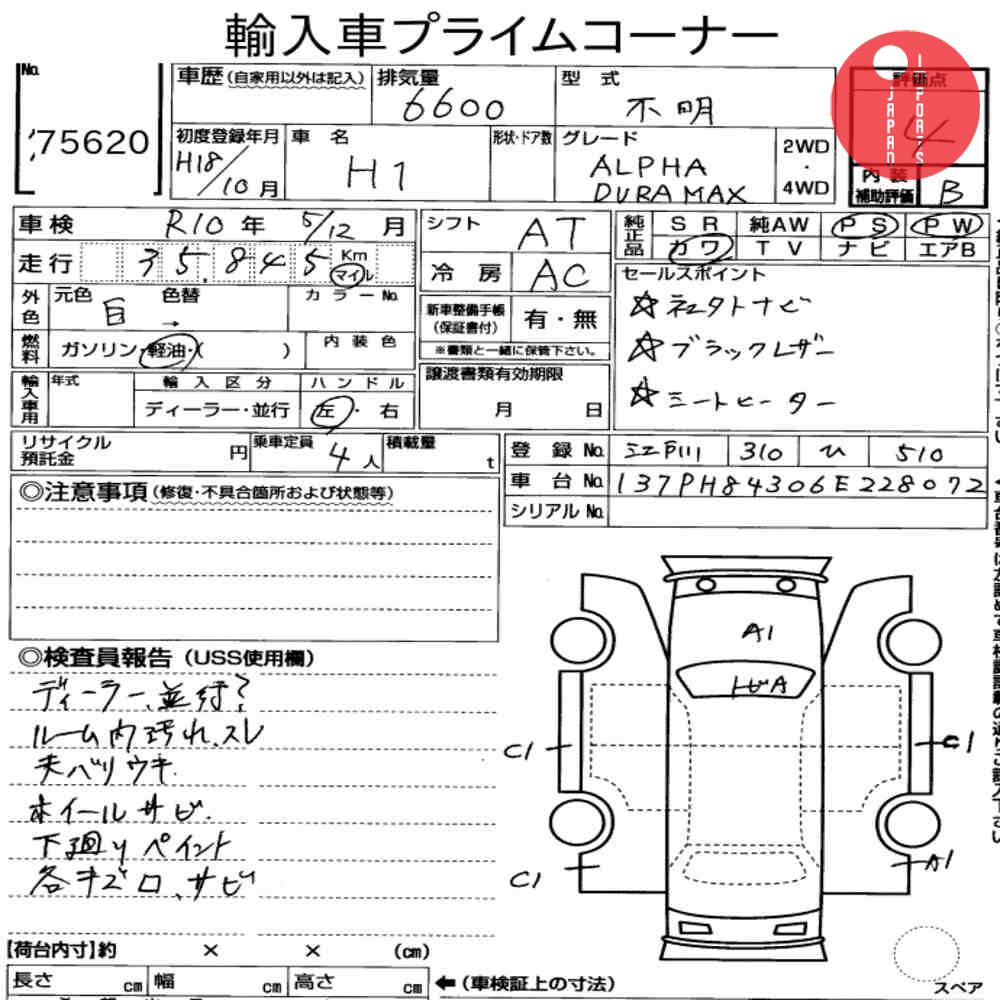 輸入車プライムコーナー
No.
75620
車歴(自家用以外は記入)
排気量
6600
型 式
不明
評価点
4
JAPAN
IMPORTS
初度登録年月
H18/10月
車 名
H1
形状・ドア数
グレード
ALPHA
DURAMAX
2WD
・
4WD
内 装
補助評価
B
車検
R10年 5/12月
走行
35.845
Km
マイル
シフト
AT
冷 房
AC
純正品
SR 純AW PS PW
カワ TV ナビ エアB
セールスポイント
☆社外ナビ
☆ブラックレザー
☆シートヒーター
外色
元色
色替
白 →
カラーNo.
燃料
ガソリン・軽油・( )
内 装 色
新車整備手帳
(保証書付)
有・無
※書類と一緒に保管下さい。
輸入車用
年式
輸 入 区 分
ディーラー・並行
ハ ン ド ル
左・右
譲渡書類有効期限
月 日
リサイクル
預託金
円
乗車定員
4人
積載量
t
登 録 No.
江戸川 310 ひ 510
車 台 No.
137PH84306E228072
シリアル No.
◎注意事項(修復・不具合箇所および状態等)
◎検査員報告(USS使用欄)
ディーラー、並行?
ルーム内汚れ、スレ
天ベリウキ
ホイールサビ.
下廻りペイント
各キズ、サビ
A1
トビA
C1
C1
C1
A1
【荷台内寸】約 × × (cm)
長さ cm
幅 cm
高さ cm
←(車検証上の寸法)
スペア